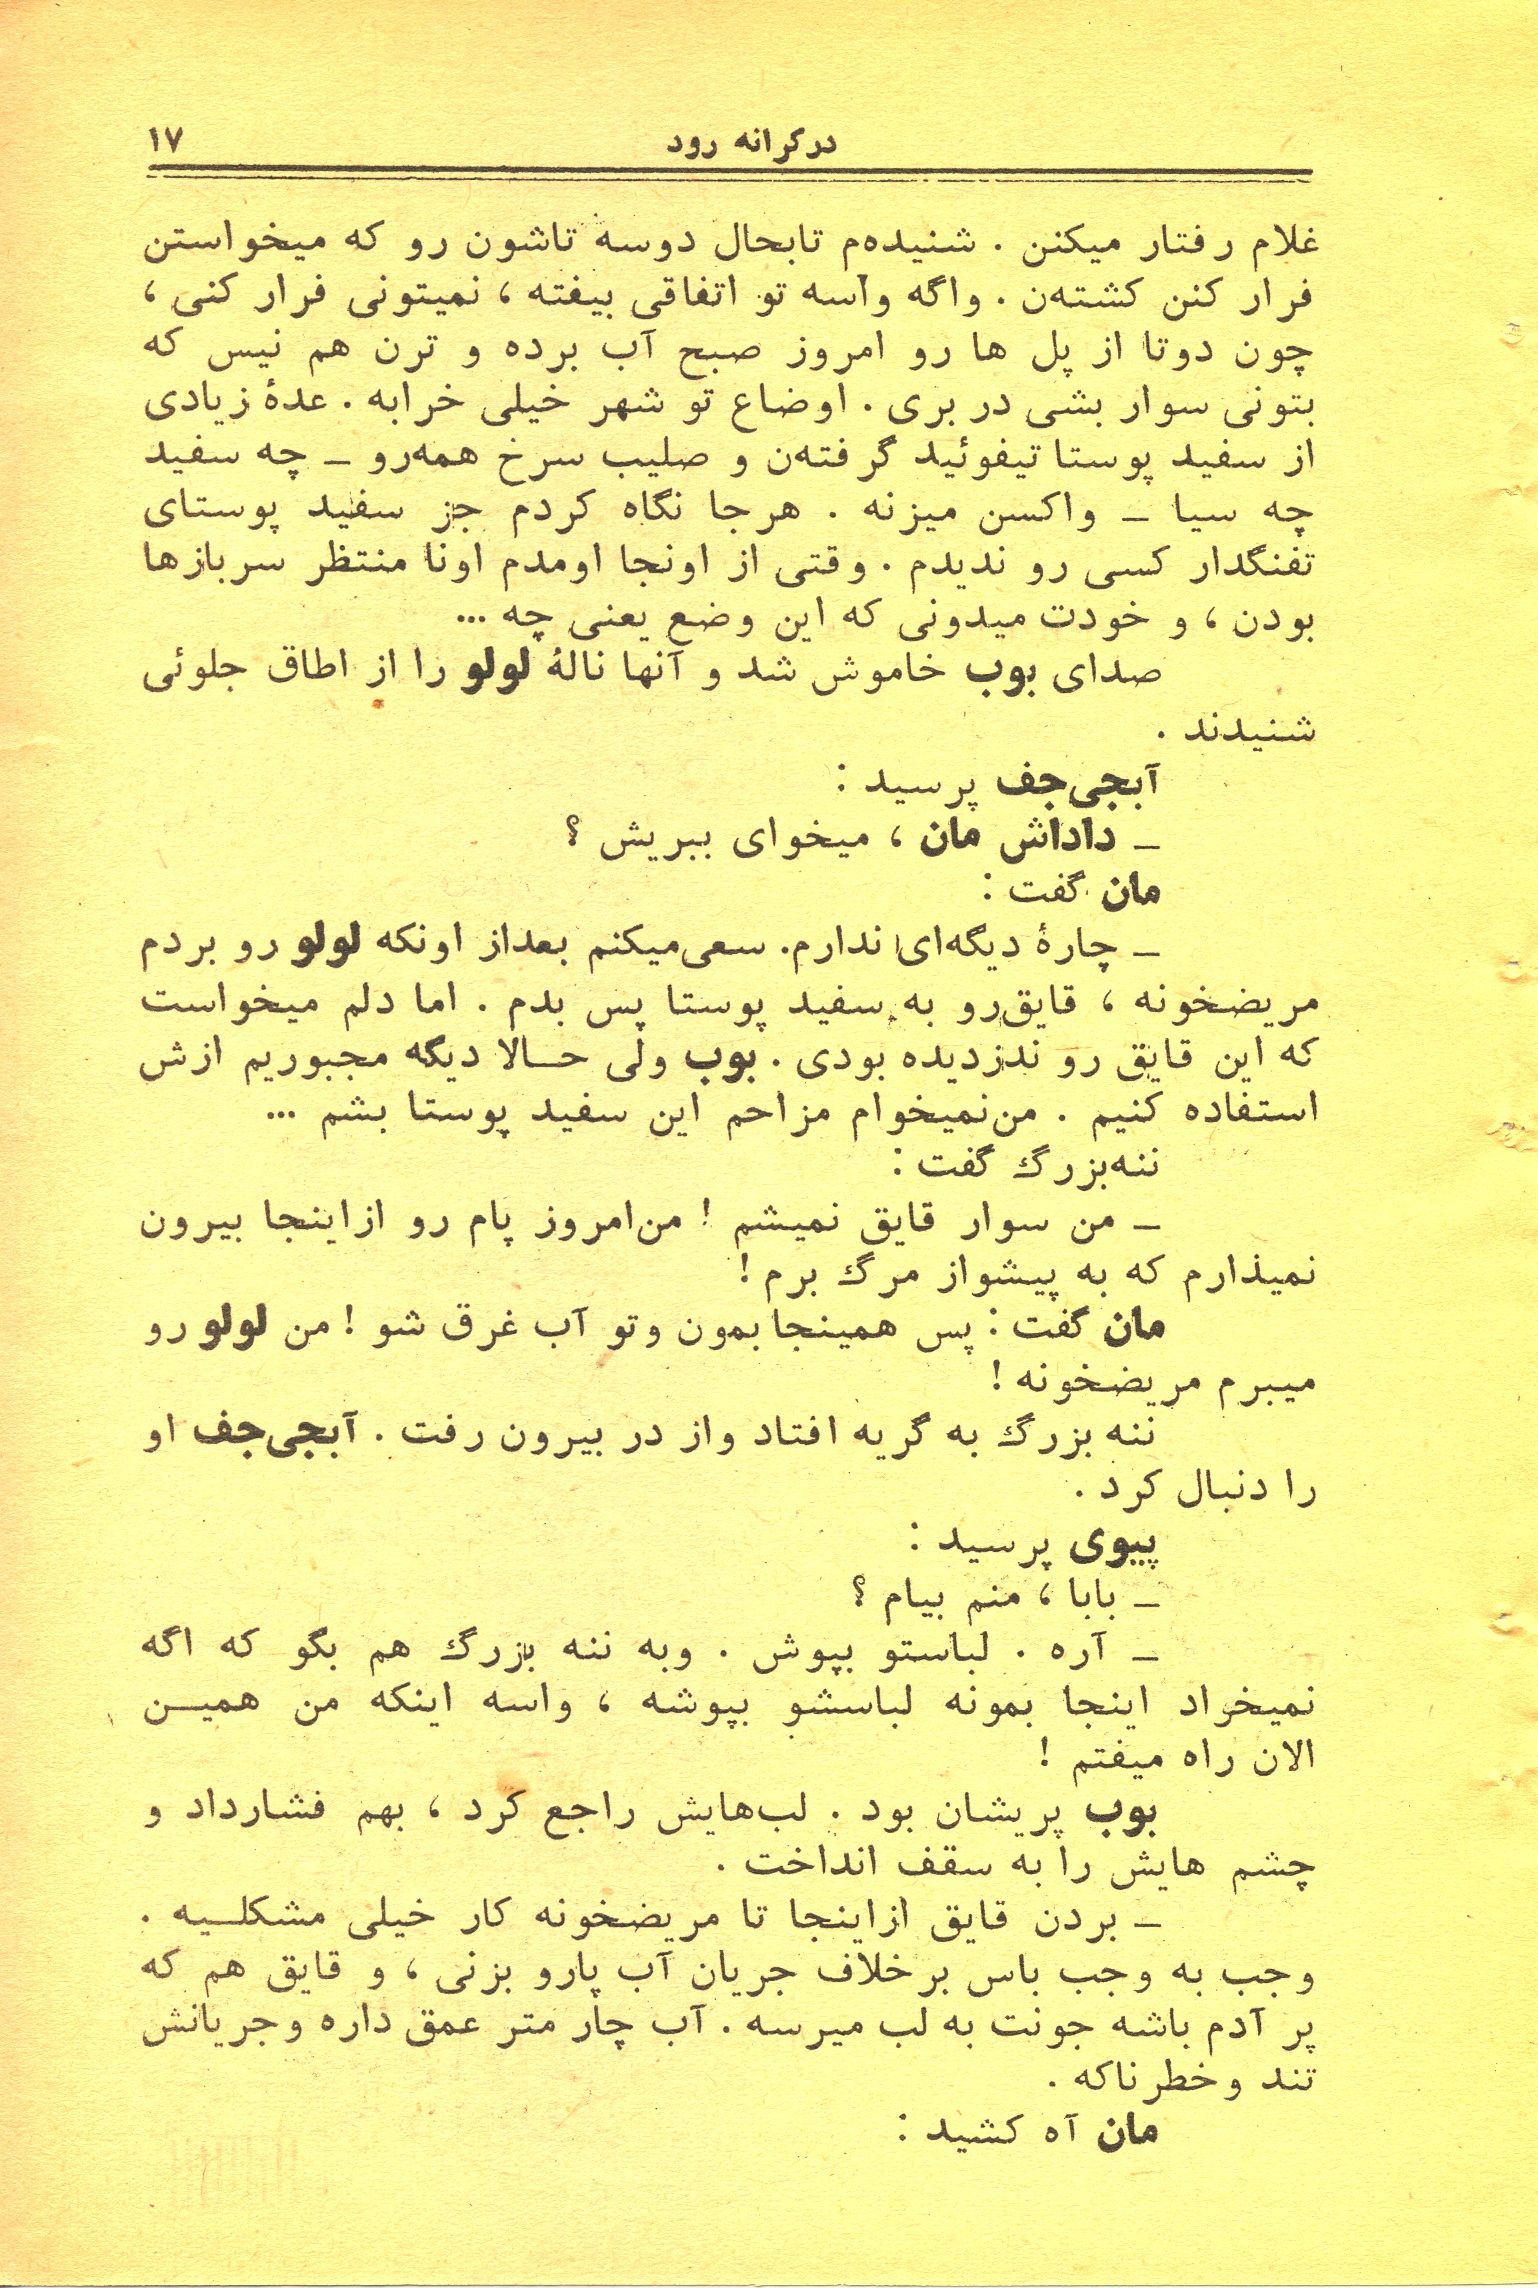 درکرانه رود ۱۷
غلام رفتار میکنن . شنیده‌م تابحال دوسه تاشون رو که میخواستن
فرار کنن کشته‌ن . واگه وآسه تو اتفاقی بیفته ، نمیتونی فرار کنی ،
چون دوتا از پل ها رو امروز صبح آب برده و ترن هم نیس که
بتونی سوار بشی در بری . اوضاع تو شهر خیلی خرابه . عدهٔ زیادی
از سفید پوستا تیفوئید گرفته‌ن و صلیب سرخ همه‌رو ـ چه سفید
چه سیا ـ واکسن میزنه . هرجا نگاه کردم جز سفید پوستای
تفنگدار کسی رو ندیدم . وقتی از اونجا اومدم اونا منتظر سربازها
بودن ، و خودت میدونی که این وضع یعنی چه ...
صدای بوب خاموش شد و آنها نالهٔ لولو را از اطاق جلوئی
شنیدند .
آبجی‌جف پرسید :
ـ داداش مان ، میخوای ببریش ؟
مان گفت :
ـ چارهٔ دیگه‌ای ندارم. سعی‌میکنم بعداز اونکه لولو رو بردم
مریضخونه ، قایق‌رو به سفید پوستا پس بدم . اما دلم میخواست
که این قایق رو ندزدیده بودی . بوب ولی حالا دیگه مجبوریم ازش
استفاده کنیم . من‌نمیخوام مزاحم این سفید پوستا بشم ...
ننه‌بزرگ گفت :
ـ من سوار قایق نمیشم ! من‌امروز پام رو ازاینجا بیرون
نمیذارم که به پیشواز مرگ برم !
مان گفت : پس همینجا بمون وتو آب غرق شو ! من لولو رو
میبرم مریضخونه !
ننه بزرگ به گریه افتاد واز در بیرون رفت . آبجی‌جف او
را دنبال کرد .
پیوی پرسید :
ـ بابا ، منم بیام ؟
ـ آره . لباستو بپوش . وبه ننه بزرگ هم بگو که اگه
نمیخراد اینجا بمونه لباسشو بپوشه ، واسه اینکه من همین
الان راه میفتم !
بوب پریشان بود . لب‌هایش راجع کرد ، بهم فشارداد و
چشم هایش را به سقف انداخت .
ـ بردن قایق ازاینجا تا مریضخونه کار خیلی مشکلیه .
وجب به وجب باس برخلاف جریان آب پارو بزنی ، و قایق هم که
پر آدم باشه جونت به لب میرسه . آب چار متر عمق داره وجریانش
تند وخطرناکه .
مان آه کشید :